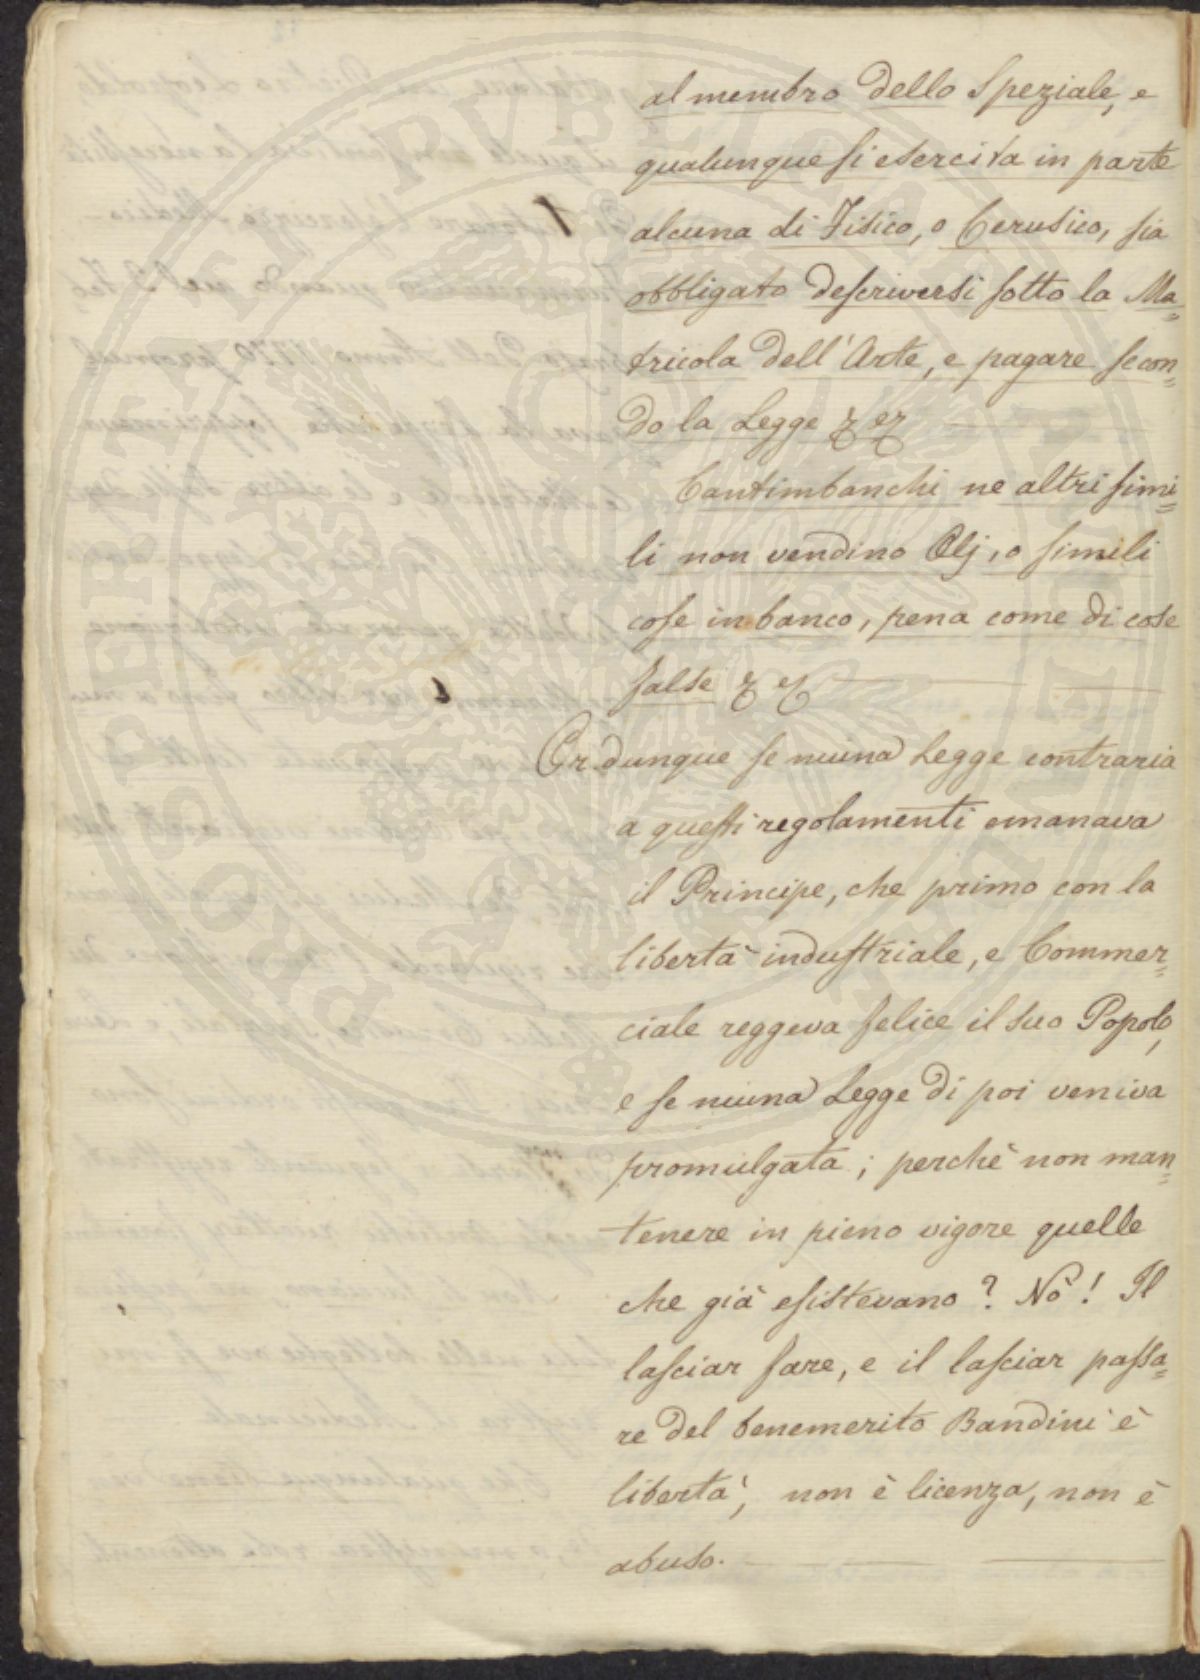 al membro dello Speziale, e
qualunque si esercita in parte
alcuna di Fisico, o Cerusico, sia
obbligato descriversi sotto la Ma=
tricola dell'Arte, e pagare secon=
do la Legge
Cantimbanchi ne altri simi=
li non vendino Olj, o simili
cose in banco, pena come di cose
false
Or dunque se niuna Legge contraria
a questi regolamenti emanava
il Principe, che primo con la
libertà industriale, e Commer=
ciale reggeva felice il suo Popolo,
e se niuna Legge di poi veniva
promulgata; perchè non man=
tenere in pieno vigore quelle
che già esistevano? Nò! Il
lasciar fare, e il lasciar passa=
re del benemerito Bandini è
libertà, non è licenza, non è
abuso.